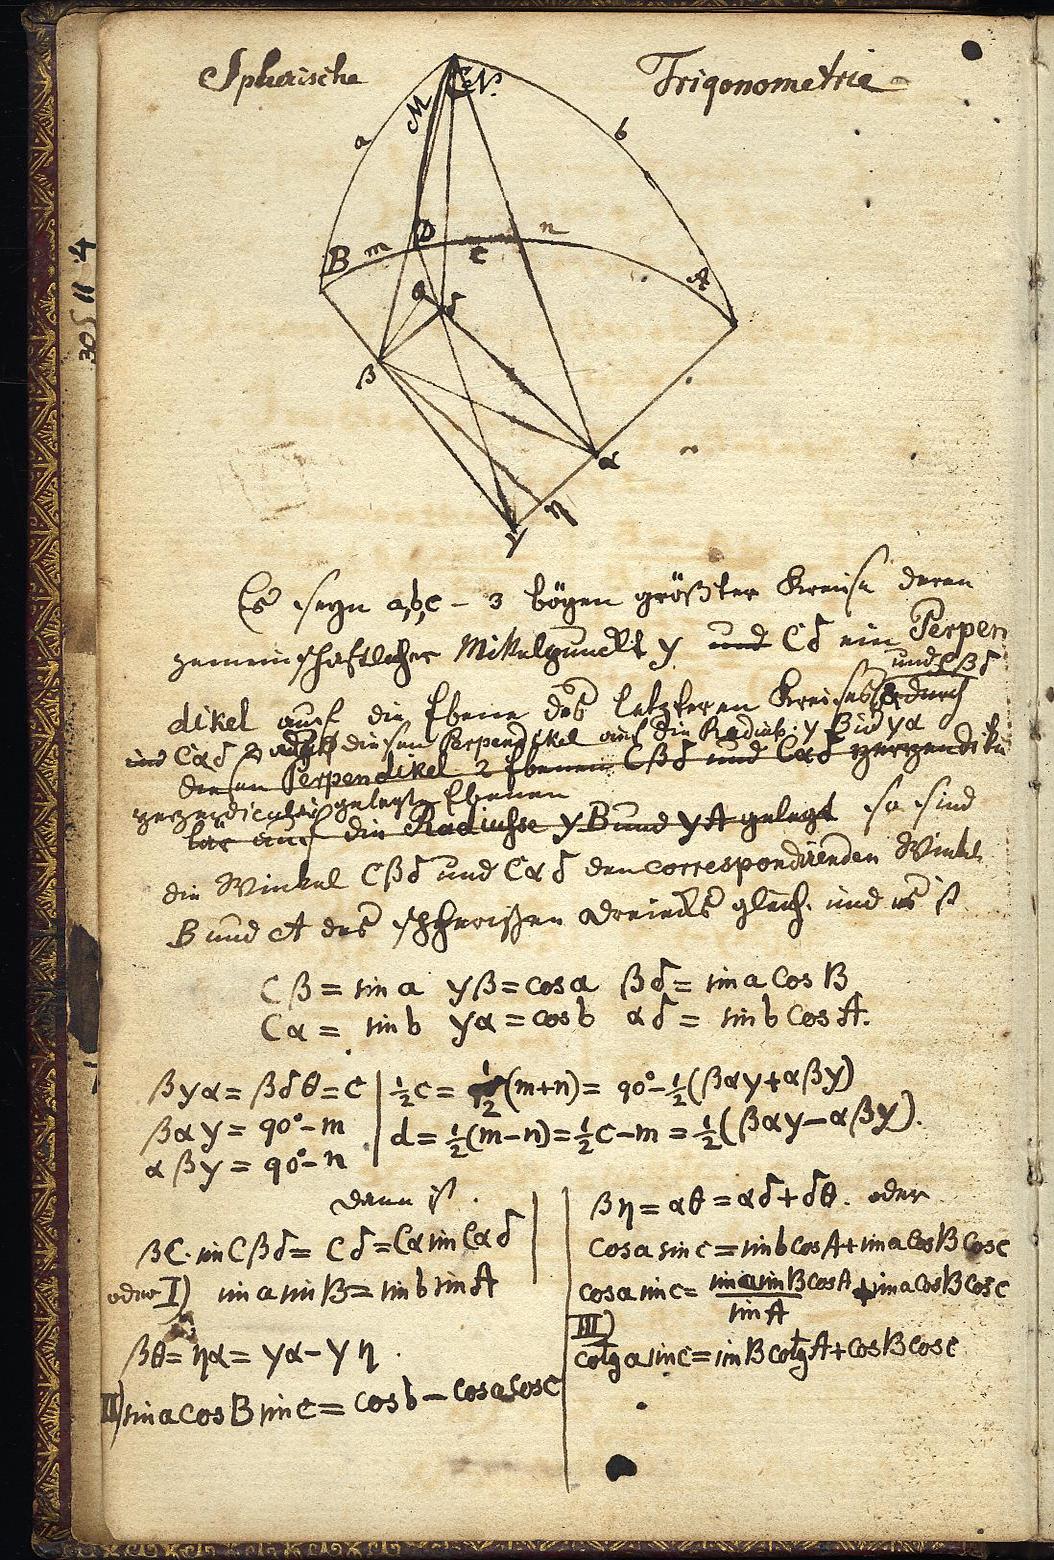 Sphärische Trigonometrie
C N.
M
a
b
D
n
B m
c
A
θ δ
β
α
η
γ
Es seyn a, b, c – 3 bögen größter Kreise deren
gemeinschaftlicher Mittelpunckt γ und Cδ ein Perpen
und Cβδ
dikel auf die Ebene des letzteren Kreises durch
und Cαδ 2 diesen Perpendikel auf die Radius γB und γA
diesen Perpendikel 2 Ebenen Cβδ und Cαδ perpendiku
perpendicular gelegte Ebenen
lär auf die Radiusse γB und γA gelegt so sind
die Winkel Cβδ und Cαδ den correspondirenden Winkel
B und A des sphärischen Dreiecks gleich. und es ist
Cβ = sin a γβ = cos a βδ = sin a cos B
Cα = sin b γα = cos b αδ = sin b cos A.
βγα = βδθ = c
βαγ = 90° – m
αβγ = 90° – n
½c = ½(m+n) = 90° – ½(βαγ + αβγ)
d = ½(m–n) = ½c – m = ½(βαγ – αβγ).
dann ist.
βC · sin Cβδ = Cδ = Cα sin Cαδ
oder I) sin a sin B = sin b sin A
βθ = ηα = γα – γη.
II) sin a cos B sin c = cos b – cos a cos c
βη = αθ = αδ + δθ. oder
cos a sin c = sin b cos A + sin a cos B cos c
cos a sin c = sin a sin B cos A / sin A + sin a cos B cos c
III)
cotg a sin c = sin B cotg A + cos B cos c
305 11 4